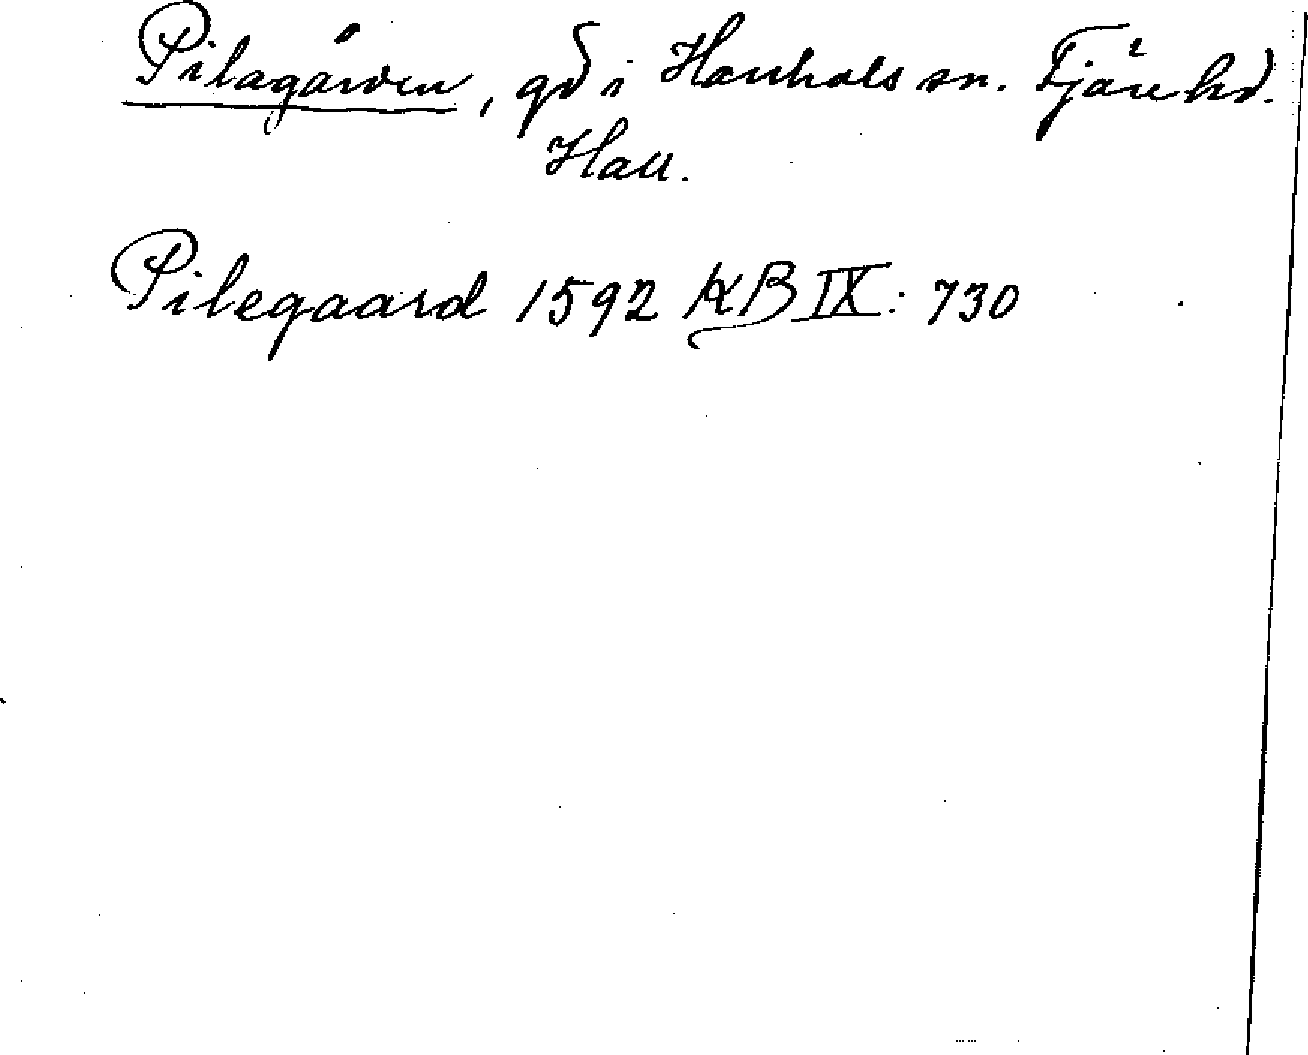 Pilagården, gd i Hanhals sn. Fjäre hd.
Hall.
Pilegaard 1592 KB IX: 730